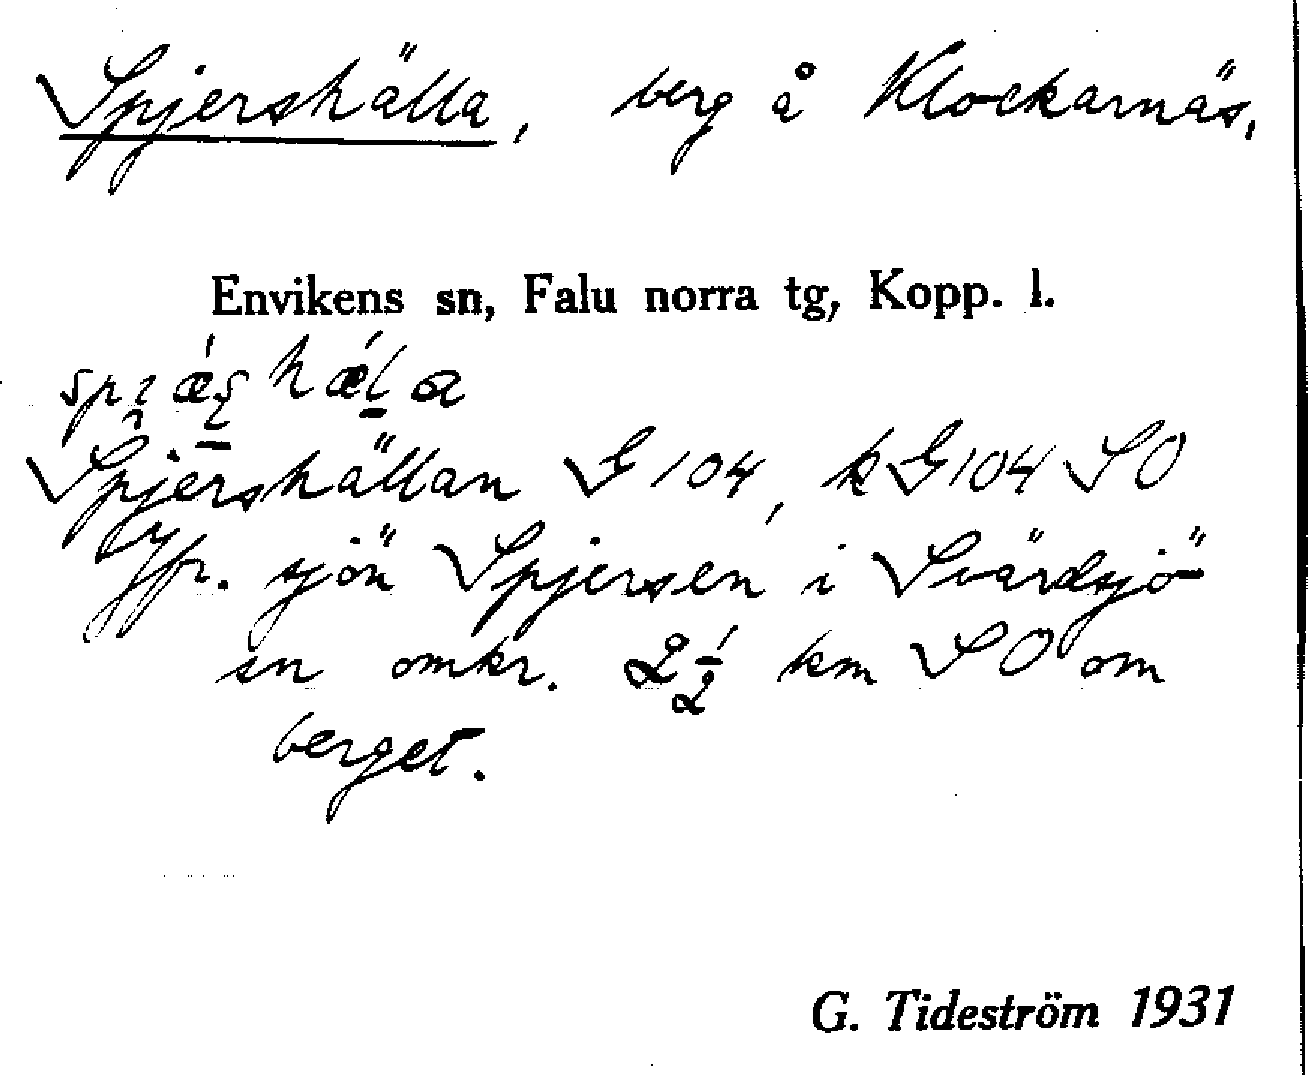 Spjershälla, berg å Klockarnäs,
Envikens sn, Falu norra tg, Kopp. l.
Spjershällan G 104, kG104 SO
Jfr. sjön Spjersen i Svärdsjö
sn omkr. 2½ km SO om
berget.
G. Tideström 1931